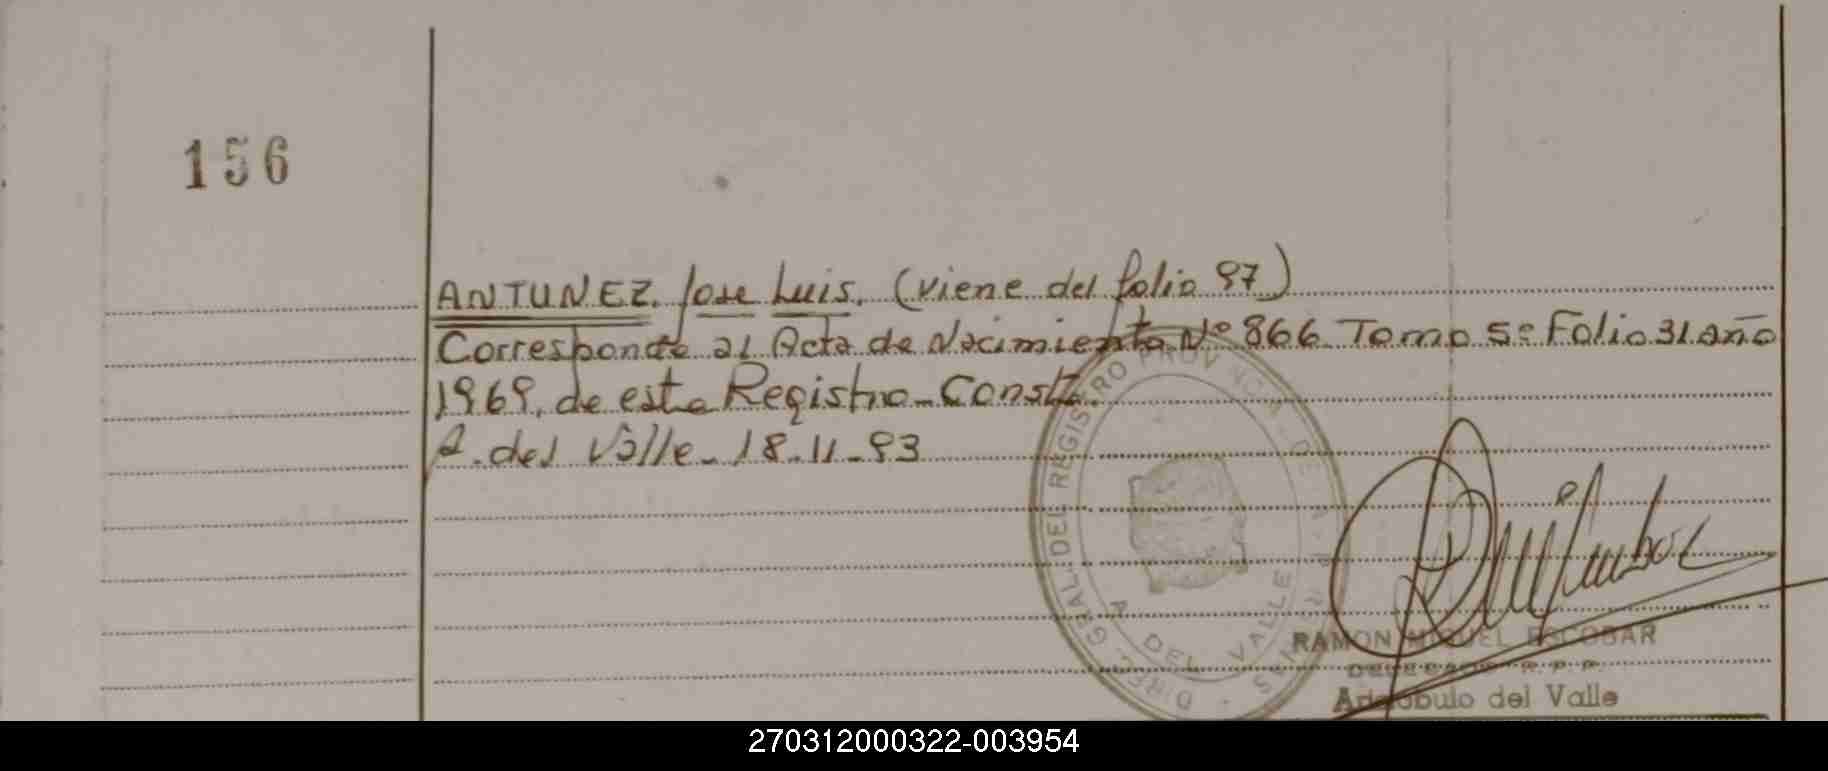 156
ANTUNEZ. Jose Luis. (viene del folio 97)
Corresponde al Acta de Nacimiento Nº 866 Tomo 5º Folio 31 año
1969, de este Registro - Const.
A. del Valle - 18-11-93
DIREC. GRAL. DEL REGISTRO PROV
A. DEL VALLE
RAMON MIGUEL ESCOBAR
DELEGADO R.P.P.
Aristobulo del Valle
270312000322-003954